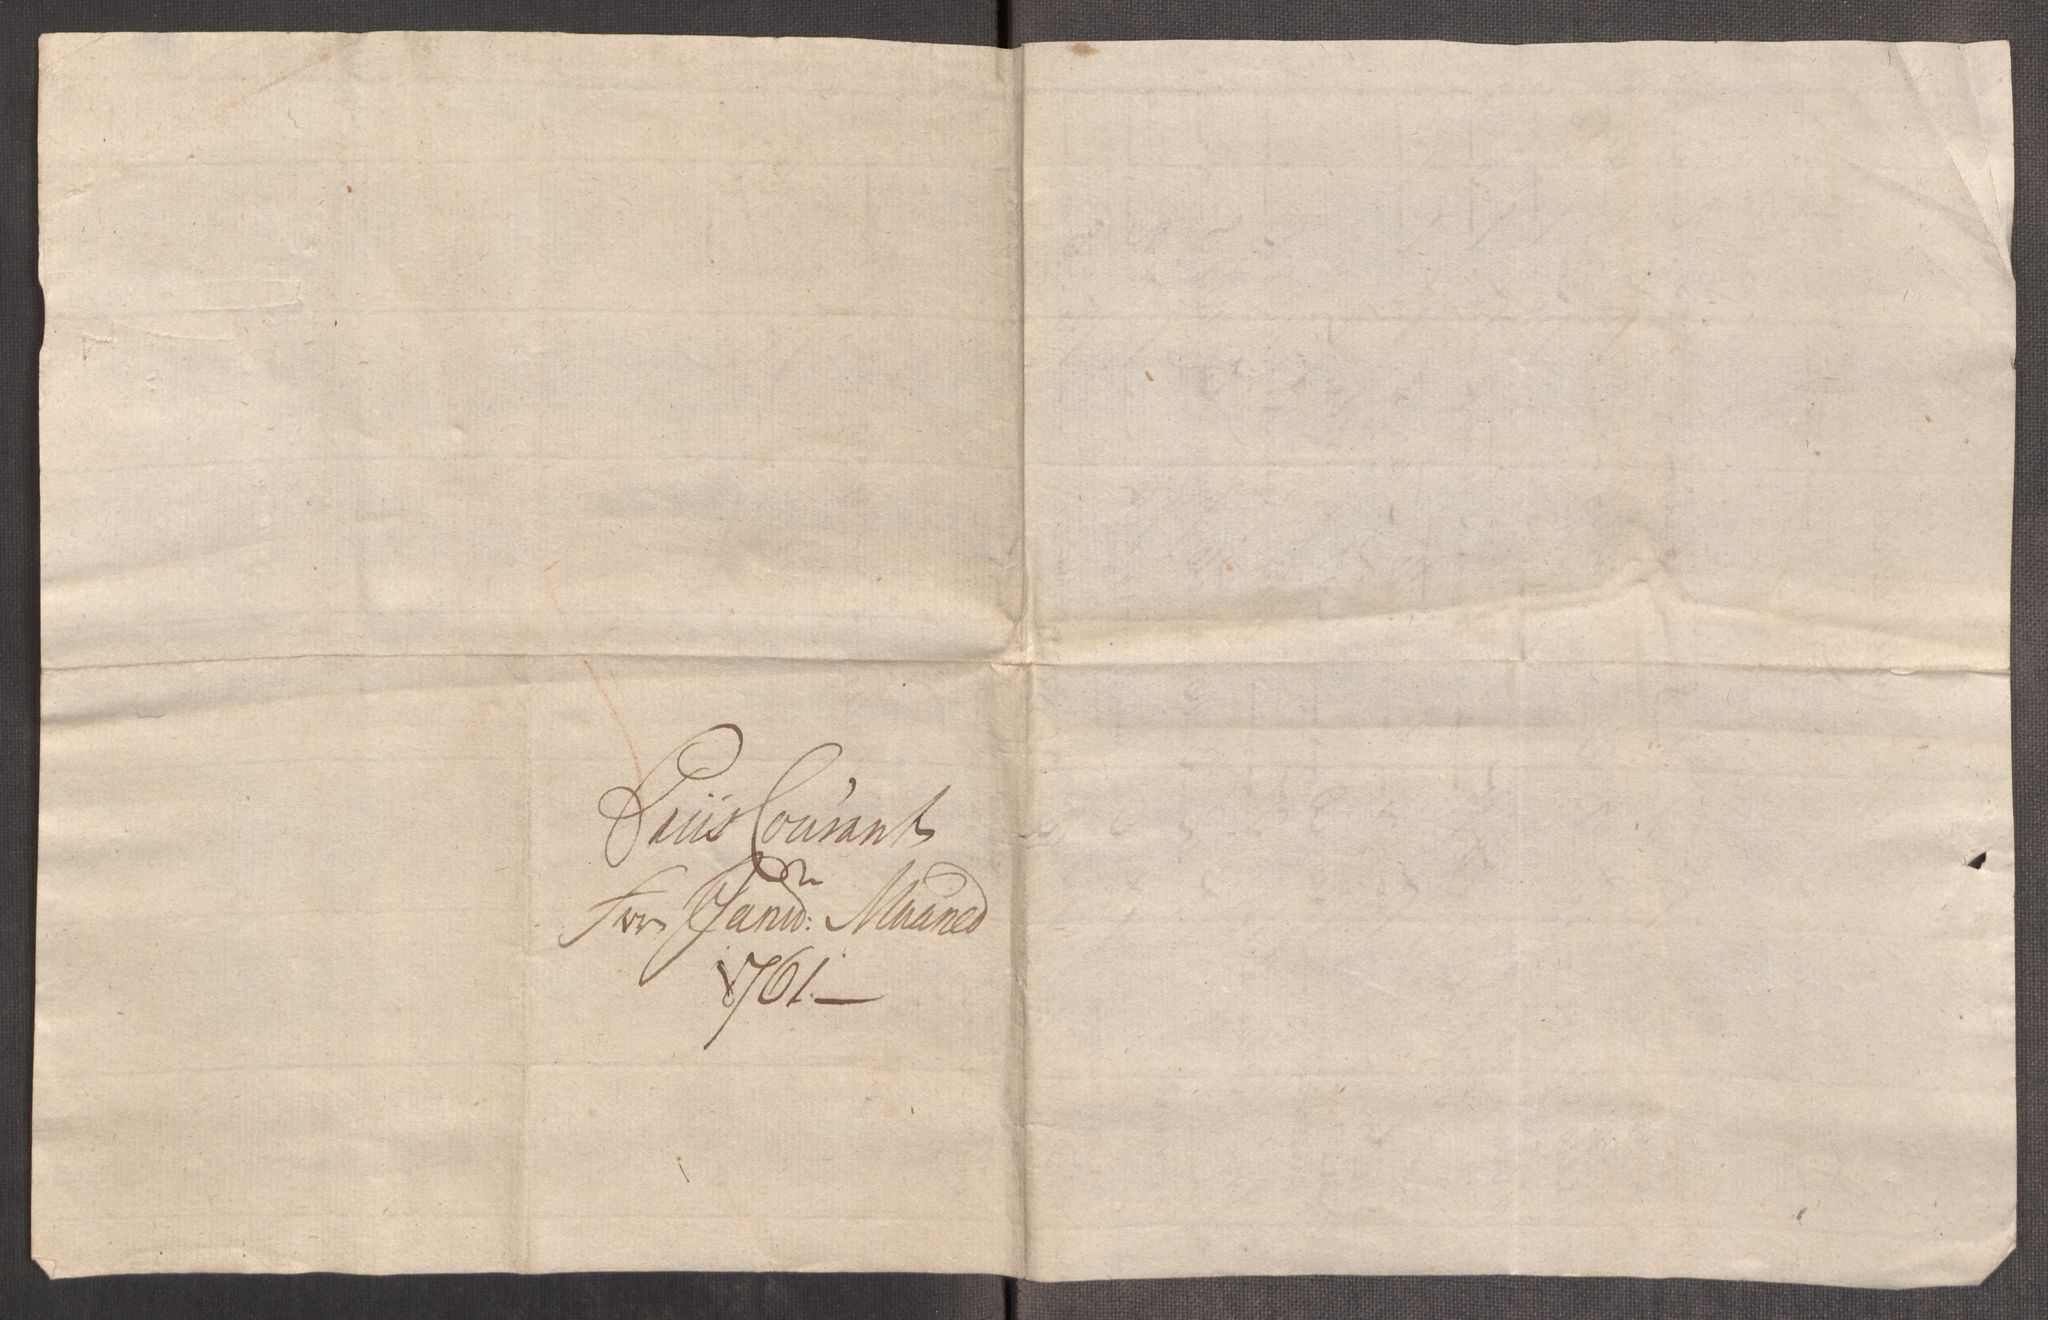 Priis Courant
For Janv: Maaned
1761.—